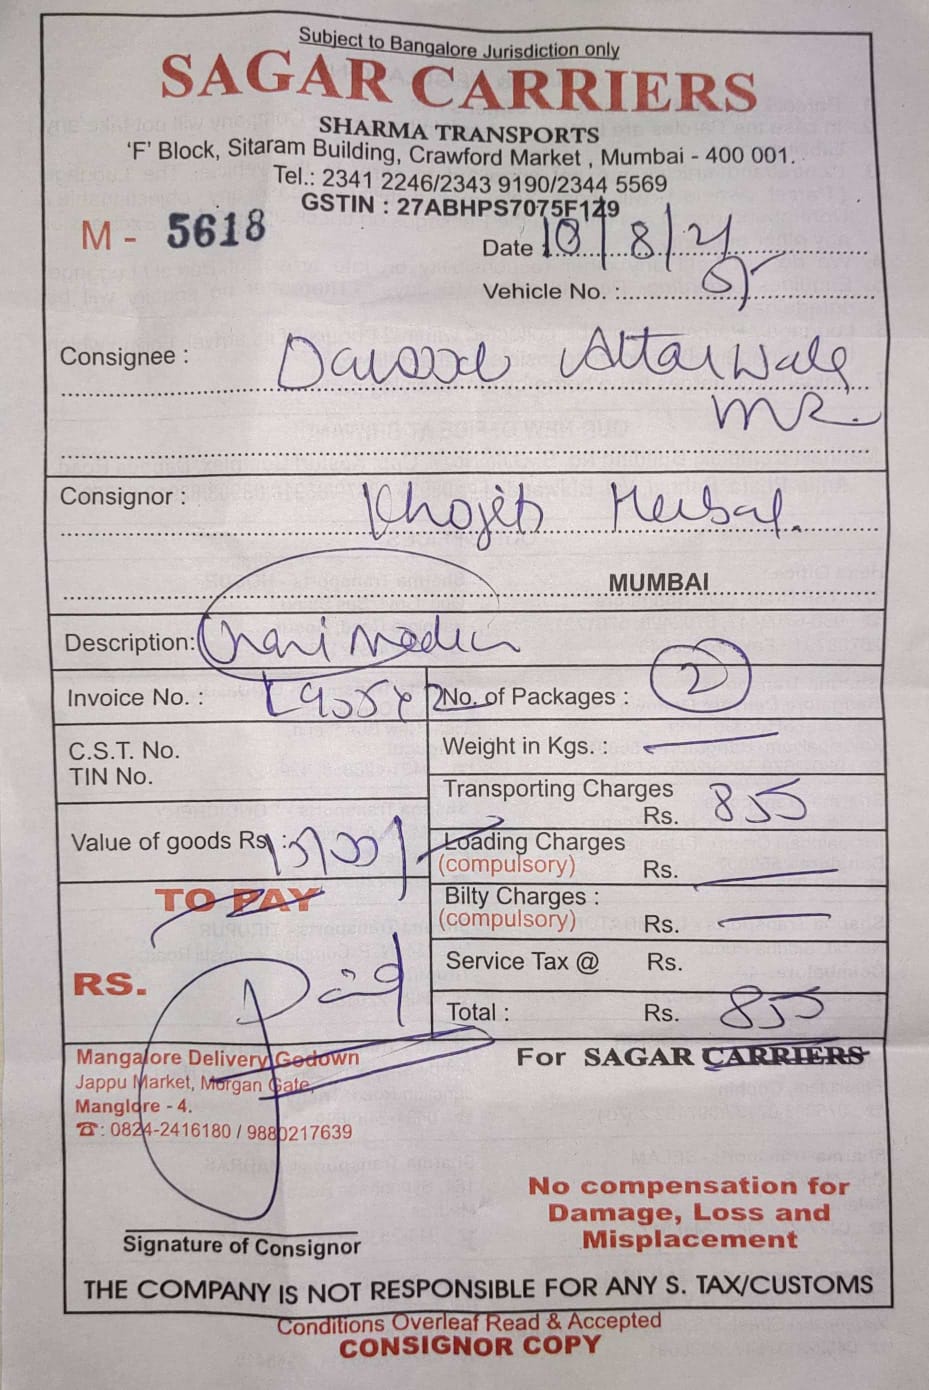 Subject to Bangalore Jurisdiction only
SAGAR CARRIERS
SHARMA TRANSPORTS
'F' Block, Sitaram Building, Crawford Market , Mumbai - 400 001.
Tel.: 2341 2246/2343 9190/2344 5569
GSTIN : 27ABHPS7075F1Z9
M - 5618
Date : 10/8/21
Vehicle No. :
Consignee : Dawood Attarwala
MR.
Consignor : Khojati Herbal.
MUMBAI
Description:
Invoice No. :
No. of Packages : 2
C.S.T. No.
TIN No.
Weight in Kgs. : -
Transporting Charges
Rs. 855
Value of goods Rs :
Loading Charges
(compulsory) Rs. -
TO PAY
Bilty Charges :
(compulsory) Rs. -
RS. Paid
Service Tax @ Rs.
Total : Rs. 855
Mangalore Delivery Godown
Jappu Market, Morgan Gate,
Manglore - 4.
☎: 0824-2416180 / 9880217639
For SAGAR CARRIERS
No compensation for
Damage, Loss and
Misplacement
Signature of Consignor
THE COMPANY IS NOT RESPONSIBLE FOR ANY S. TAX/CUSTOMS
Conditions Overleaf Read & Accepted
CONSIGNOR COPY